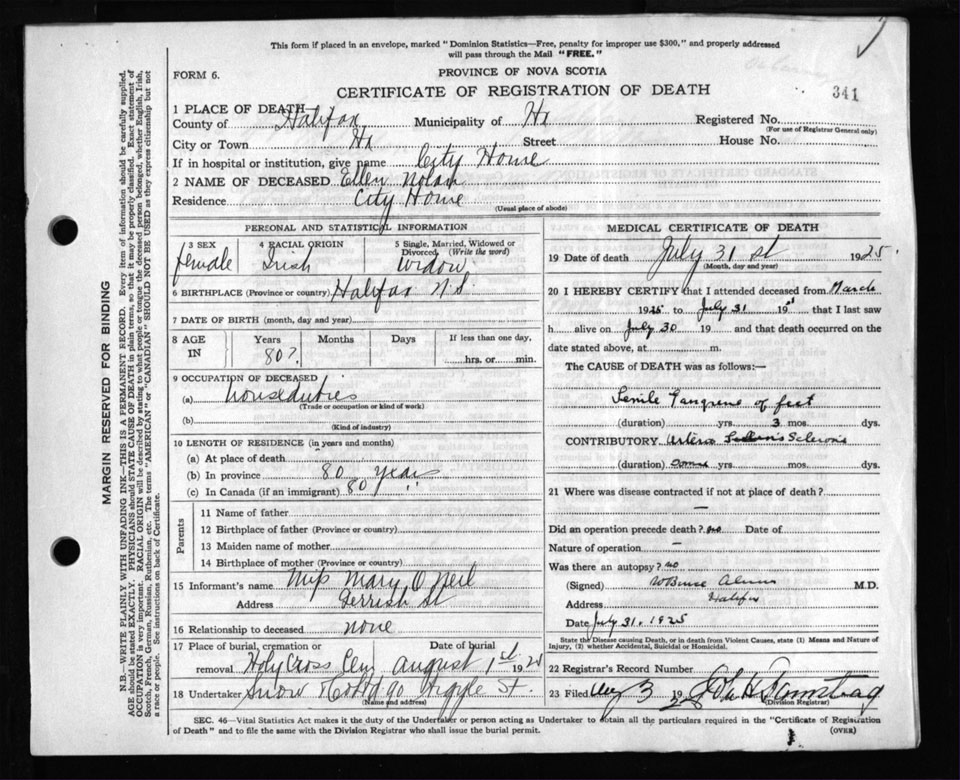 This form if placed in an envelope, marked "Dominion Statistics—Free, penalty for improper use $300," and properly addressed
will pass through the Mail "FREE."
FORM 6.
PROVINCE OF NOVA SCOTIA
CERTIFICATE OF REGISTRATION OF DEATH
341
1 PLACE OF DEATH
County of Halifax Municipality of Hx Registered No.
(For use of Registrar General only)
City or Town Hx Street House No.
If in hospital or institution, give name City Home
2 NAME OF DECEASED Ellen Nolan
Residence City Home
(Usual place of abode)
PERSONAL AND STATISTICAL INFORMATION
3 SEX 4 RACIAL ORIGIN 5 Single, Married, Widowed or
Divorced, (Write the word)
female Irish Widow
6 BIRTHPLACE (Province or country) Halifax N.S.
7 DATE OF BIRTH (month, day and year)
8 AGE IN Years Months Days If less than one day,
80? hrs. or min.
9 OCCUPATION OF DECEASED
(a) Houseduties
(Trade or occupation or kind of work)
(b)
(Kind of industry)
10 LENGTH OF RESIDENCE (in years and months)
(a) At place of death
(b) In province 80 years
(c) In Canada (if an immigrant) 80 "
Parents
11 Name of father
12 Birthplace of father (Province or country)
13 Maiden name of mother
14 Birthplace of mother (Province or country)
15 Informant's name Miss Mary O Neil
Address Gerrish St
16 Relationship to deceased none
17 Place of burial, cremation or removal Date of burial
Holy Cross Cem August 1st 1925
18 Undertaker Snow & Co Ltd 90 Argyle St.
(Name and address)
MEDICAL CERTIFICATE OF DEATH
19 Date of death July 31 st 1925.
(Month, day and year)
20 I HEREBY CERTIFY that I attended deceased from March
1925 to July 31 19 that I last saw
h alive on July 30 19 and that death occurred on
date stated above, at m.
The CAUSE of DEATH was as follows:—
Senile Gangrene of feet
(duration) yrs. 3 mos. dys.
CONTRIBUTORY Arterio Sclerosis
(duration) some yrs. mos. dys.
21 Where was disease contracted if not at place of death?
—
Did an operation precede death? no Date of
Nature of operation —
Was there an autopsy? no
(Signed) M.D.
Address Halifax
Date July 31. 1925
State the Disease causing Death, or in death from Violent Causes, state (1) Means and Nature of
Injury, (2) whether Accidental, Suicidal or Homicidal.
22 Registrar's Record Number
23 Filed Aug 3 19
(Division Registrar)
SEC. 46—Vital Statistics Act makes it the duty of the Undertaker or person acting as Undertaker to obtain all the particulars required in the "Certificate of Registration
of Death" and to file the same with the Division Registrar who shall issue the burial permit.
(OVER)
MARGIN RESERVED FOR BINDING
N.B.—WRITE PLAINLY WITH UNFADING INK—THIS IS A PERMANENT RECORD. Every item of information should be carefully supplied.
AGE should be stated EXACTLY. PHYSICIANS should STATE CAUSE OF DEATH in plain terms, so that it may be properly classified. Exact statement of
OCCUPATION is very important. RACIAL ORIGIN will be described by stating to what people or tongue the deceased person belonged, whether English, Irish,
Scotch, French, German, Russian, Ruthenian, etc. The terms "AMERICAN" or "CANADIAN" SHOULD NOT BE USED as they express citizenship but not
a race or people. See instructions on back of Certificate.